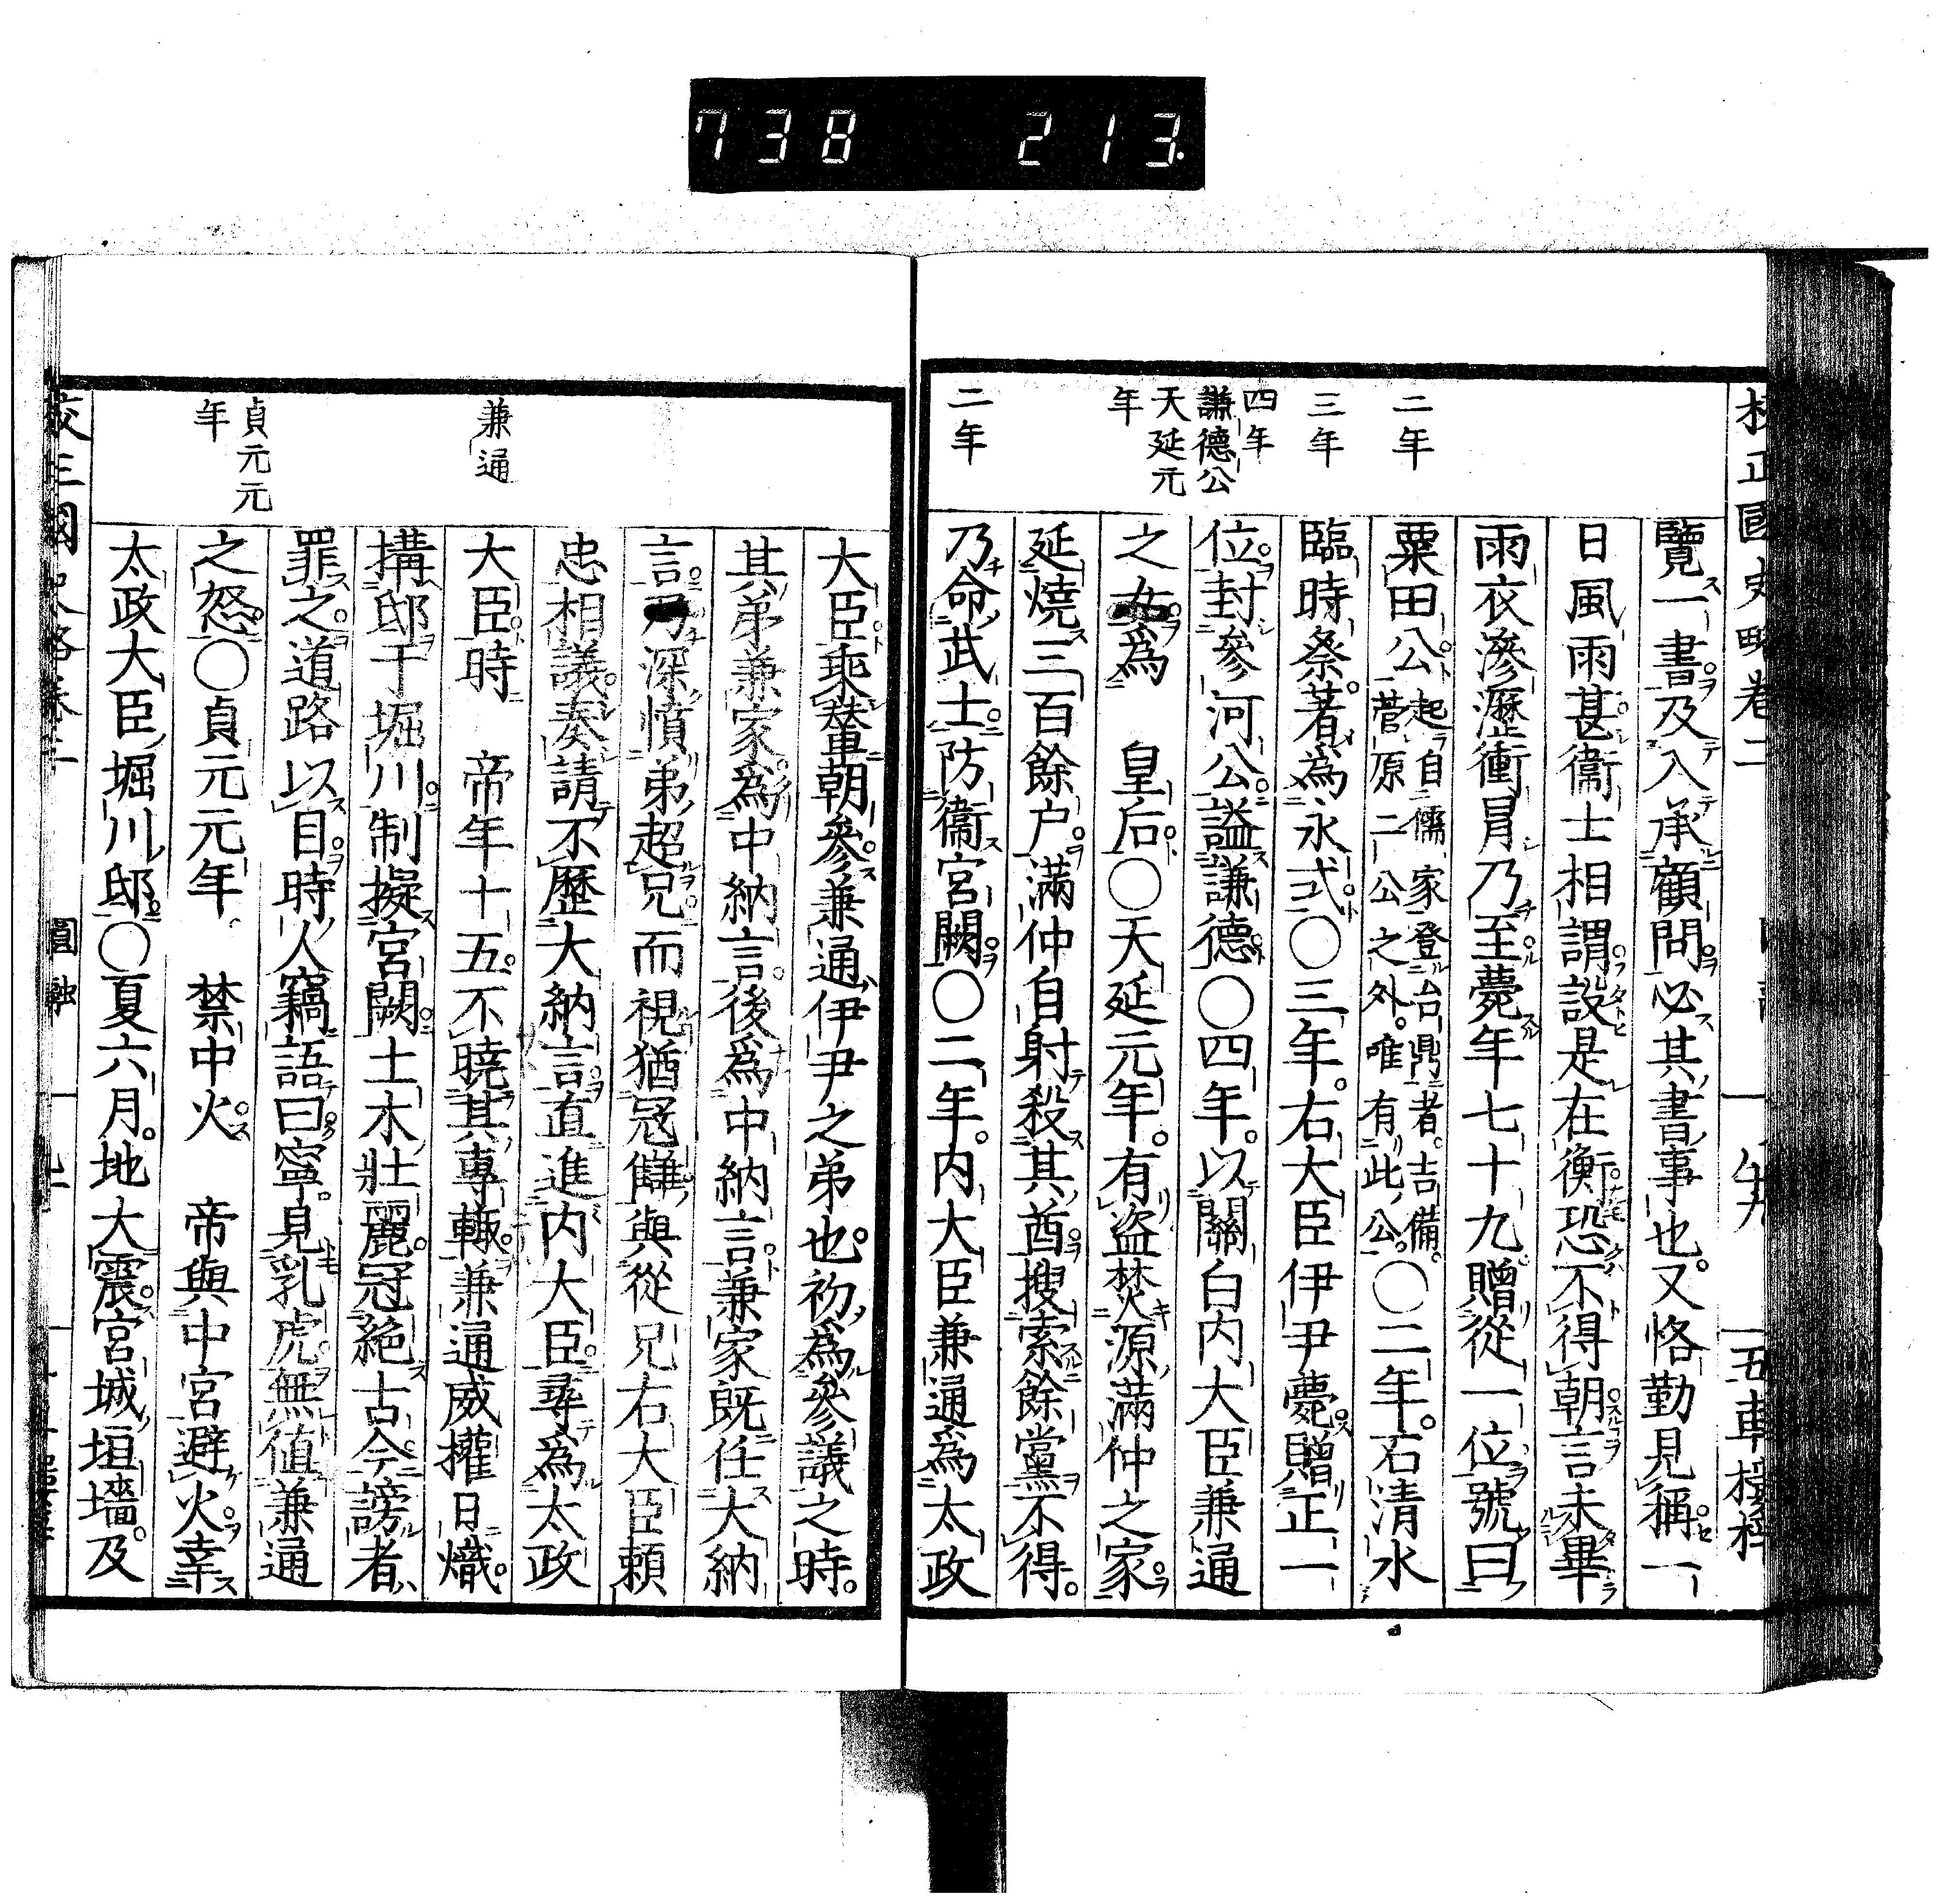 738 213.
二年
三年
四年
謙德公
天延元
年
二年
覽一書及入承顧問必其書事也又恪勤見稱一
日風雨甚衞士相謂設是在衡恐不得朝言未畢
雨衣滲瀝衝冒乃至薨年七十九贈從一位號曰
粟田公起自儒家登台鼎者吉備
菅原二公之外唯有此公〇二年石清水
臨時祭著爲永式〇三年右大臣伊尹薨贈正一
位封參河公謚謙德〇四年以關白内大臣兼通
之女爲 皇后〇天延元年有盗焚源滿仲之家
延燒三百餘户滿仲自射殺其酋搜索餘黨不得
乃命武士防衞宮闕〇二年内大臣兼通為太政
兼通
貞元元
年
大臣乘輦朝參兼通伊尹之弟也初爲參議之時
其弟兼家爲中納言後爲中納言兼家既任大納
言乃深憤弟超兄而視猶冦讎與從兄右大臣頼
忠相議奏請不歴大納言直進内大臣尋爲太政
大臣時 帝年十五不曉其專輙兼通威權日熾
搆邸于堀川制擬宮闕土木壯麗冠絶古今謗者
罪之道路以目時人竊語曰寧見乳虎無値兼通
之怒〇貞元元年 禁中火 帝與中宮避火幸
太政大臣堀川邸〇夏六月地大震宮城垣墻及